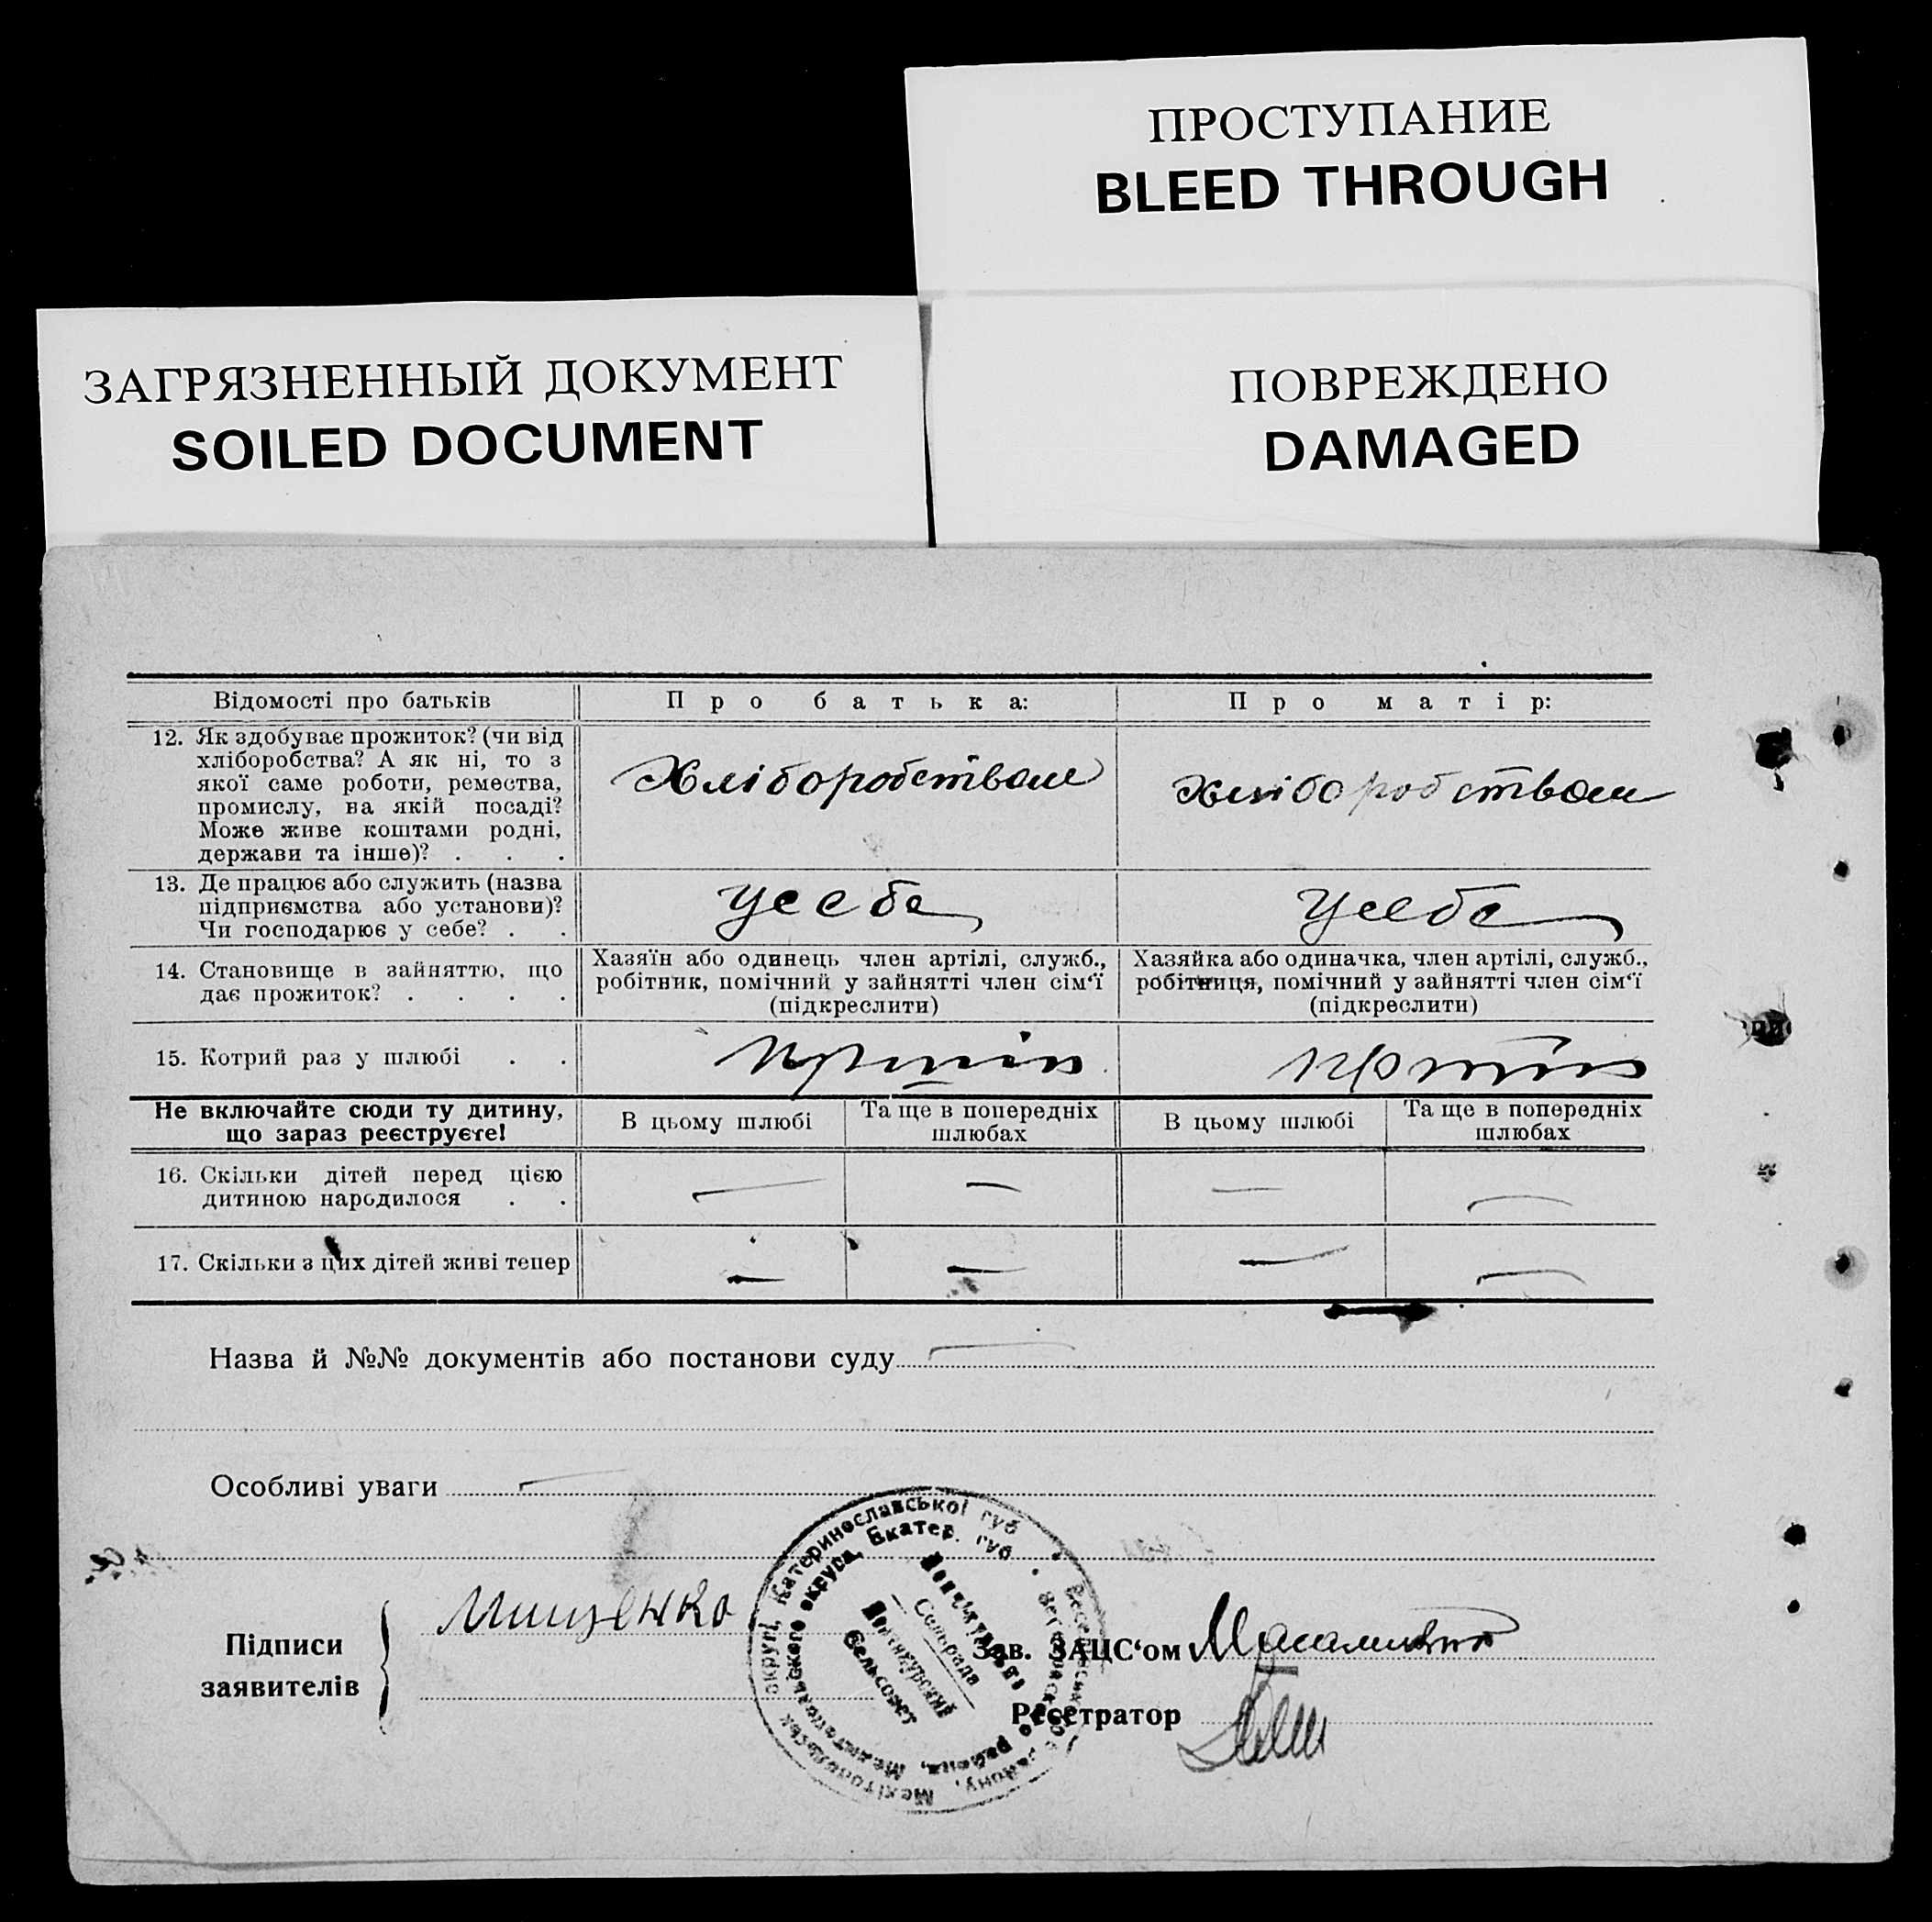 ПРОСТУПАНИЕ
BLEED THROUGH
ЗАГРЯЗНЕННЫЙ ДОКУМЕНТ
SOILED DOCUMENT
ПОВРЕЖДЕНО
DAMAGED
Відомості про батьків Про батька: Про матір:
12. Як здобуває прожиток? (чи від
хліборобства? А як ні, то з
якої саме роботи, ремества,
промислу, на якій посаді?
Може живе коштами родні,
держави та інше)? . . .
Хліборобством Хліборобством
13. Де працює або служить (назва
підприємства або установи)?
Чи господарює у себе? . .
У себе У себе
14. Становище в зайняттю, що
дає прожиток? . . . .
Хазяїн або одинець член артілі, служб.,
робітник, помічний у зайнятті член сім‘ї
(підкреслити)
Хазяйка або одиначка, член артілі, служб.,
робітниця, помічний у зайнятті член сім‘ї
(підкреслити)
15. Котрий раз у шлюбі . .
Не включайте сюди ту дитину,
що зараз реєструєте!
В цьому шлюбі
Та ще в попередніх
шлюбах
В цьому шлюбі
Та ще в попередніх
шлюбах
16. Скільки дітей перед цією
дитиною народилося . .
— — — —
17. Скільки з цих дітей живі тепер
— — — —
Назва й №№ документів або постанови суду —
Особливі уваги —
Підписи
заявителів
Мищенко
Зав. ЗАЦС‘ом
Реєстратор
Мелітопольськ округи, Катеринославської губ
Мелитопольского округа, Екатер. губ
Сельрада
Сельсовет